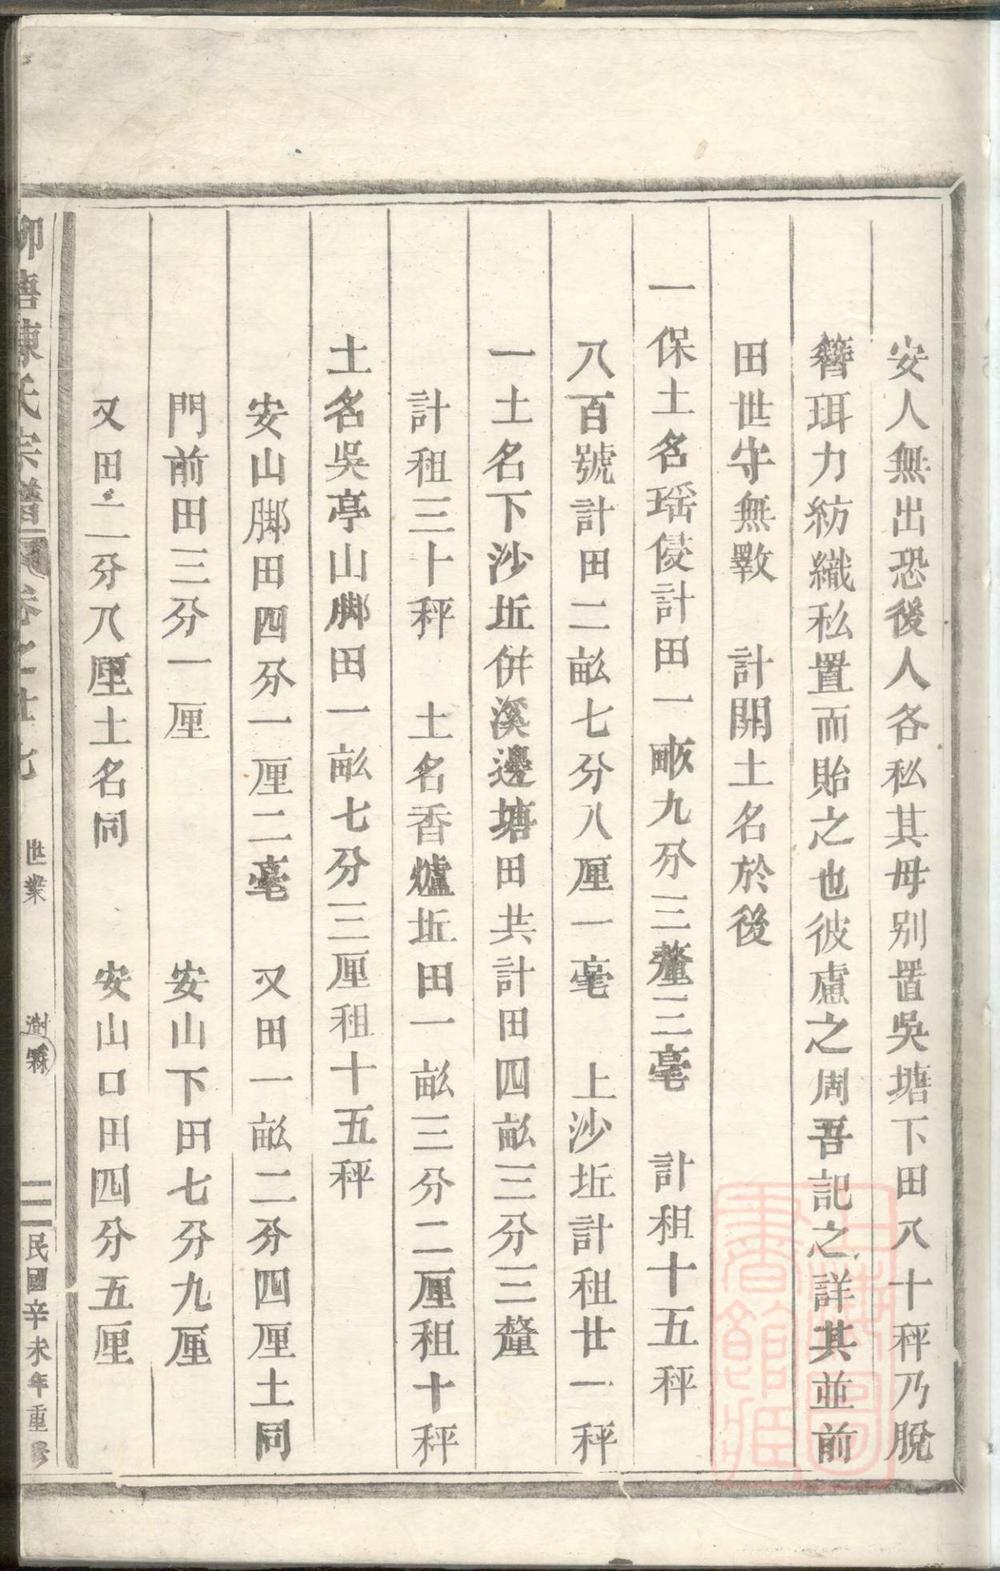 安人無出恐後人各私其母別置吳塘下田八十秤乃脫
簪珥力紡織私置而貽之也彼慮之周吾記之詳其並前
田世守無斁　計開土名於後
一保土名瑶侵計田一畝九分三釐三毫　計租十五秤
八百號計田二畝七分八厘一毫　上沙坵計租廿一秤
一土名下沙坵併溪邊塘田共計田四畝三分三釐
計租三十秤　土名香爐坵田一畝三分二厘租十秤
土名吳亭山脚田一畝七分三厘租十五秤
安山脚田四分一厘二毫　又田一畝二分四厘土同
門前田三分一厘　安山下田七分九厘
又田二分八厘土名同　安山口田四分五厘
柳塘陳氏宗譜　卷之廿七　世業　二　民國辛未年重修
上海圖書館藏